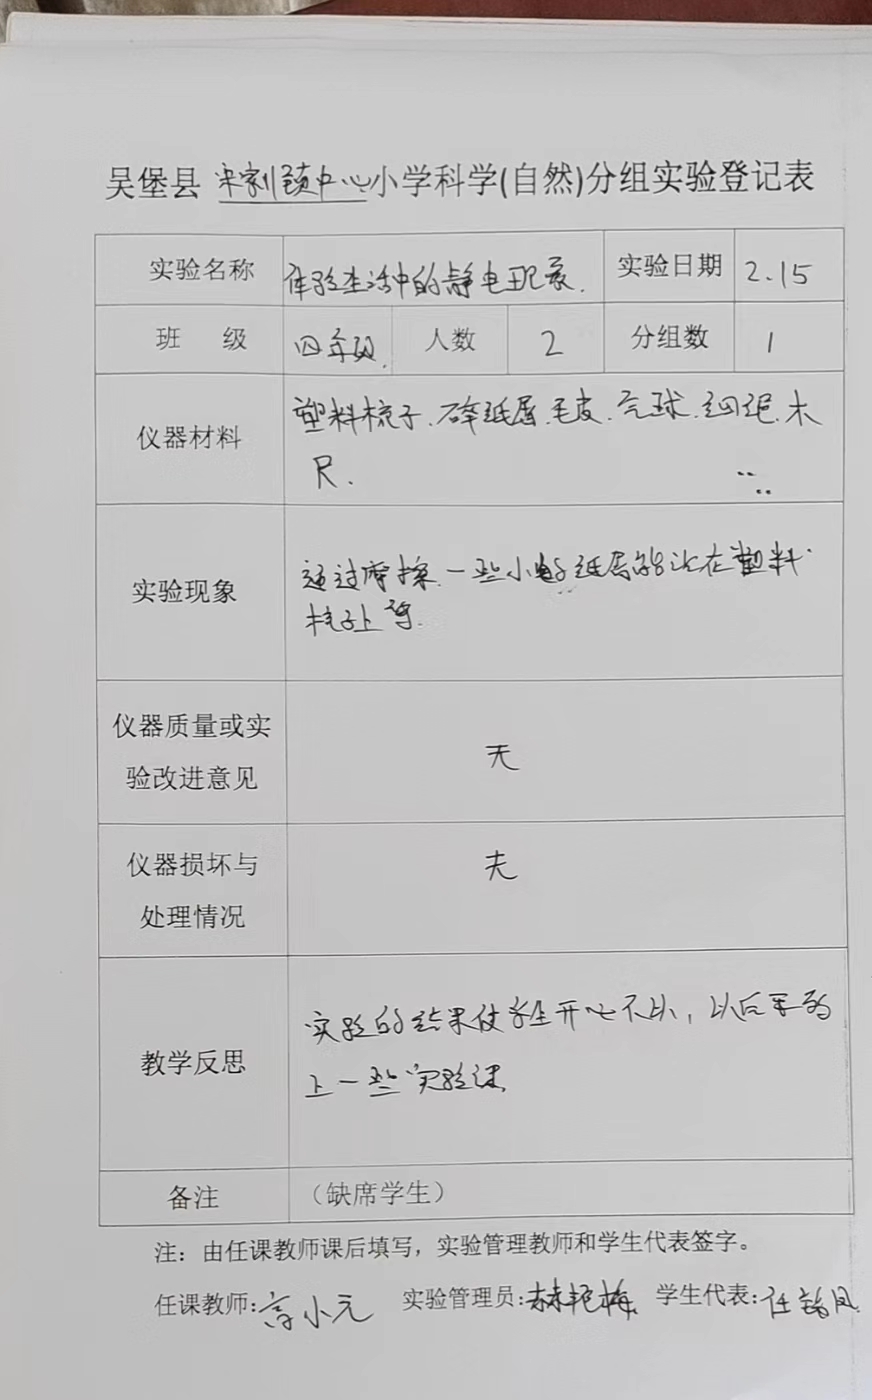 吴堡县 宋家川镇中心小学科学(自然)分组实验登记表
实验名称 体验生活中的静电现象. 实验日期 2.15
班 级 四年级. 人数 2 分组数 1
仪器材料 塑料梳子.碎纸屑.毛皮.气球.细绳.木
尺.
实验现象 通过摩擦.一些小的纸屑能沾在塑料
梳子上等.
仪器质量或实
验改进意见
无
仪器损坏与
处理情况
无
教学反思 实验的结果使学生开心不以,以后要多
上一些实验课
备注 (缺席学生)
注:由任课教师课后填写,实验管理教师和学生代表签字。
任课教师:高小元 实验管理员:赫艳梅 学生代表:任